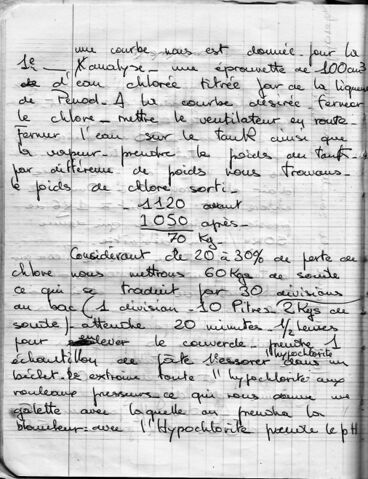 une courbe nous est donnée pour la
1e analyse - une éprouvette de 100 cm3
d'eau chlorée titrée par de la liqueur
de Penod - A la courbe désirée fermer
le chlore - mettre le ventilateur en route -
fermer l'eau sur le tank ainsi que
la vapeur - prendre le poids du tank -
par différence de poids nous trouvons -
le poids de chlore sorti -
- 1120 avant
1050 après -
70 Kg -
Considérant de 20 à 30% de perte de
chlore nous mettrons 60 Kgs de soude
ce qui se traduit par 30 divisions
au bac (1 division - 10 litres 2 Kgs de
soude) - attendre 20 minutes 1/2 heures
pour enlever le couvercle - prendre 1
échantillon de pâte l'essorer dans un
hypochlorite
béchet - le extraire toute l'hypochlorite aux
rouleaux presseurs ce qui nous donne une
galette avec laquelle on prendra la
blancheur - avec l'Hypochlorite prendre le pH